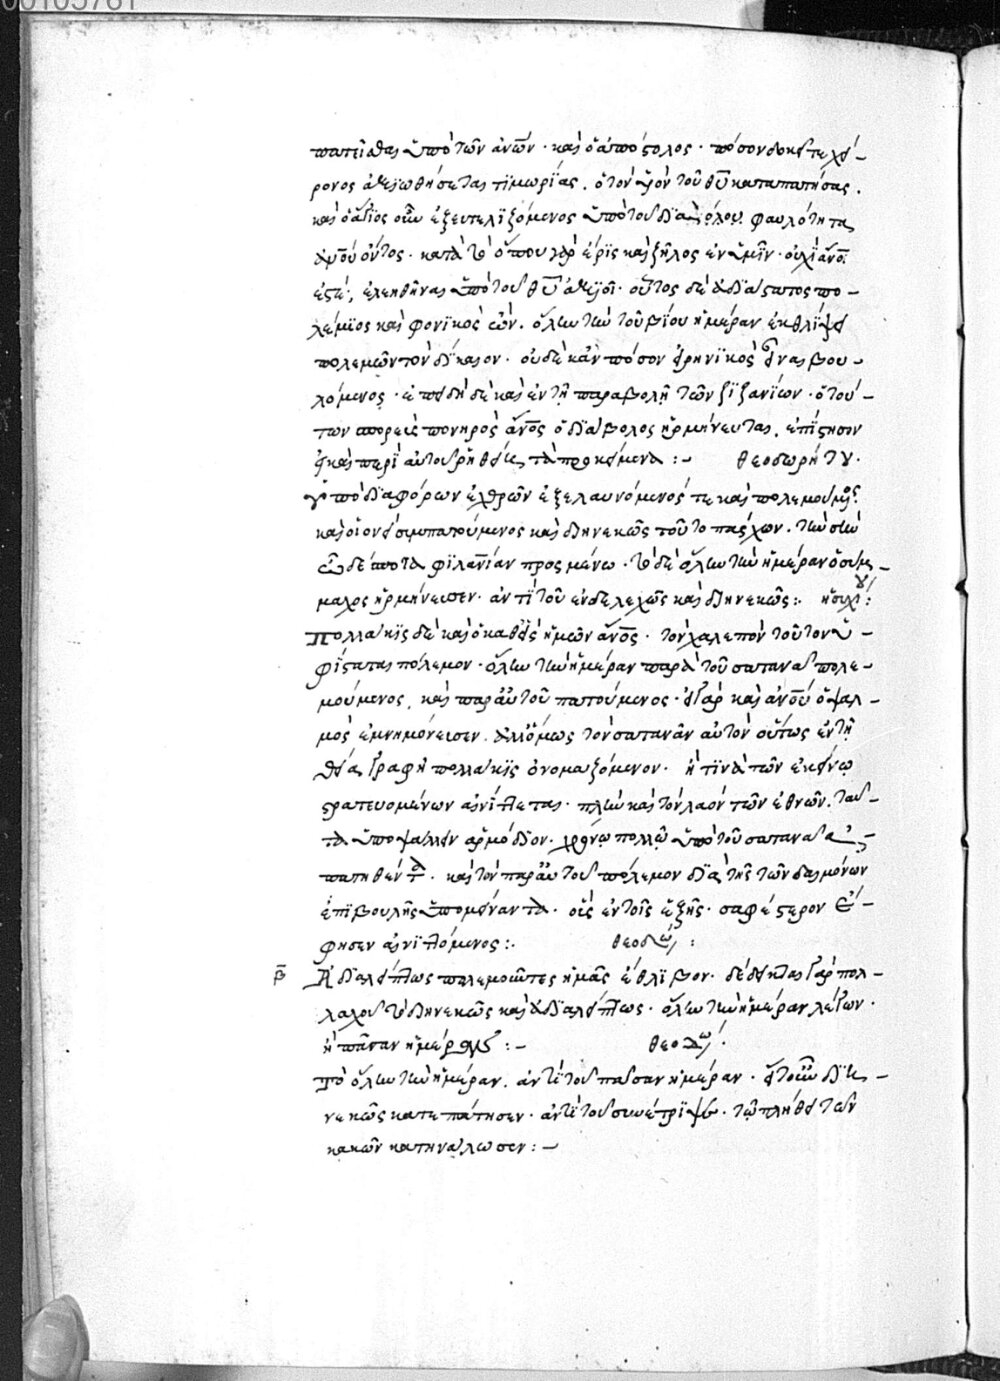 πατεῖσθαι ὑπὸ τῶν ἀν̅ων̅ · καὶ ὁ ἀπόστολος · πόσον δοκεῖτε χεί-
ρονος ἀξιωθήσεται τιμωρίας . ὁ τὸν υἱὸν τοῦ θ̅υ̅ καταπατήσας .
καὶ ὁ ἅγιος οὖν ἐξευτελιζόμενος ὑπὸ τοῦ διαβόλου φαυλότητα
ὄντος · κατὰ τὸ ὅπου γὰρ ἔρις καὶ ζῆλος ἐν ὑμῖν · οὐχὶ ἄν̅οι̅
ἐστέ , ἐλεηθῆναι ὑπὸ τοῦ θ̅υ̅ ἀξιοῖ · οὗτος δὲ ἀδιάστατος πο-
λέμιος καὶ φονικὸς ὤν . ὅλην τὴν τοῦ βίου ἡμέραν ἐκθλίψει
πολεμῶν τὸν δίκαιον · οὐδὲ κἂν πόσον εἰρηνικὸς εἶναι βου-
λόμενος · ἐπειδὴ δὲ καὶ ἐν τῇ παραβολῇ τῶν ζιζανίων · ὁ τού-
των σπορεὺς πονηρὸς ἄν̅ο̅ς̅ ὁ διάβολος ἡρμήνευται , ἐπίστησον
εἰ καὶ περὶ αὐτοῦ ῥηθείη τὰ προκείμενα : - θεοδωρήτου .
Ὑπὸ διαφόρων ἐχθρῶν ἐξελαυνόμενός τε καὶ πολεμούμενος
καὶ οἱονεὶ συμπατούμενος καὶ διηνεκῶς τοῦτο πάσχων . τὴν σὴν
ὦ δέσποτα φιλαν̅ίαν προσμένω · τὸ δὲ ὅλην τὴν ἡμέραν ὁ σύμ-
μαχος ἡρμήνευσεν · ἀντὶ τοῦ ἐνδελεχῶς καὶ διηνεκῶς : ἡσυχίου :
Πολλάκις δὲ καὶ ὁ καθεὶς ἡμῶν ἄν̅ο̅ς̅ · τὸν χαλεπὸν τοῦτον ὑ-
φίσταται πόλεμον · ὅλην τὴν ἡμέραν παρὰ τοῦ σατανᾶ πολε-
μούμενος , καὶ παρ' αὐτοῦ πατούμενος · εἰ γὰρ καὶ ἀν̅ο̅υ̅ ὁ ψαλ-
μὸς ἐμνημόνευσεν . ἀλλ' ὅμως τὸν σατανᾶν αὐτὸν οὕτως ἐν τῇ
θείᾳ γραφῇ πολλάκις ὀνομαζόμενον · ἢ τινὰ τῶν ἐκείνῳ
στρατευομένων αἰνίττεται · πλὴν καὶ τὸν λαὸν τῶν ἐθνῶν . ταῦ-
τα ὑποψάλλειν ἁρμόδιον · χρόνῳ πολλῷ ὑπὸ τοῦ σατανᾶ
πατηθέντα . καὶ τὸν παρ' αὐτοῦ πόλεμον διὰ τῆς τῶν δαιμόνων
ἐπιβουλῆς ὑπομείναντα . οἷς ἐν τοῖς ἑξῆς · σαφέστερον ἔ-
φησεν αἰνιττόμενος : . θεοδω :
β̅ Ἀδιαλείπτως πολεμοῦντες ἡμᾶς ἔθλιβον · δέδεικται γὰρ πολ-
λαχοῦ τὸ διηνεκῶς καὶ ἀδιαλείπτως · ὅλην τὴν ἡμέραν λέγων .
ἢ πᾶσαν ἡμέραν : - θεοδω .
Τὸ ὅλην τὴν ἡμέραν . ἀντὶ τοῦ πᾶσαν ἡμέραν · ἤτουν διη-
νεκῶς κατεπάτησεν · ἀντὶ τοῦ συνέτριψε · τῷ πλήθει τῶν
κακῶν κατηνάλωσεν : -